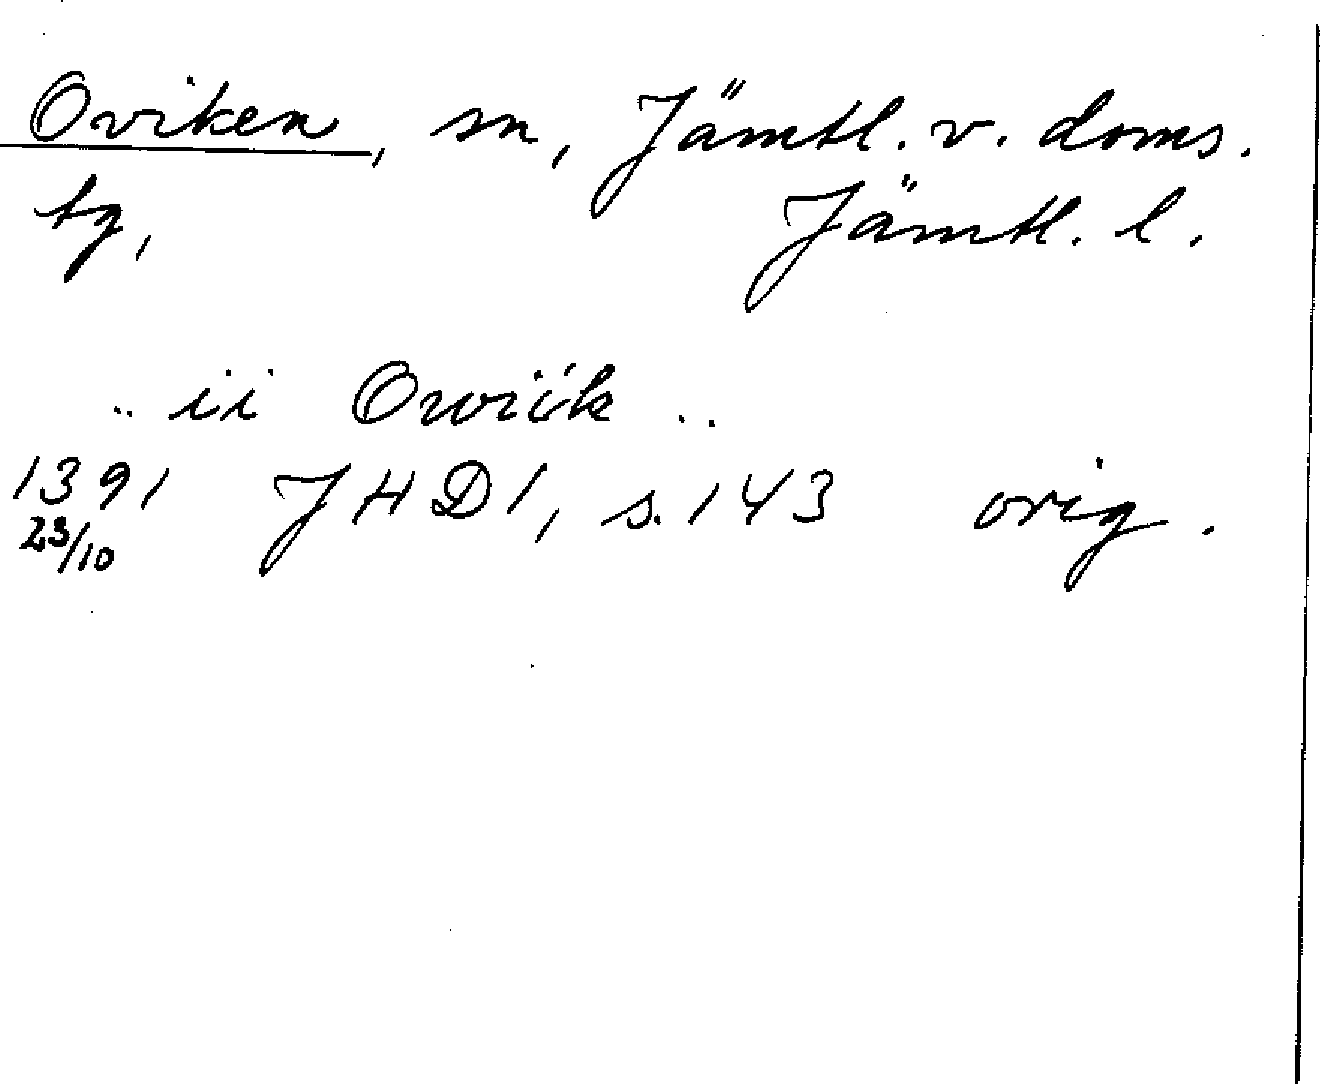 Oviken, sn, Jämtl. v. doms.
tg, Jämtl. l.
.. ii Owiik ..
1391 JHD1, s. 143 orig.
23/10